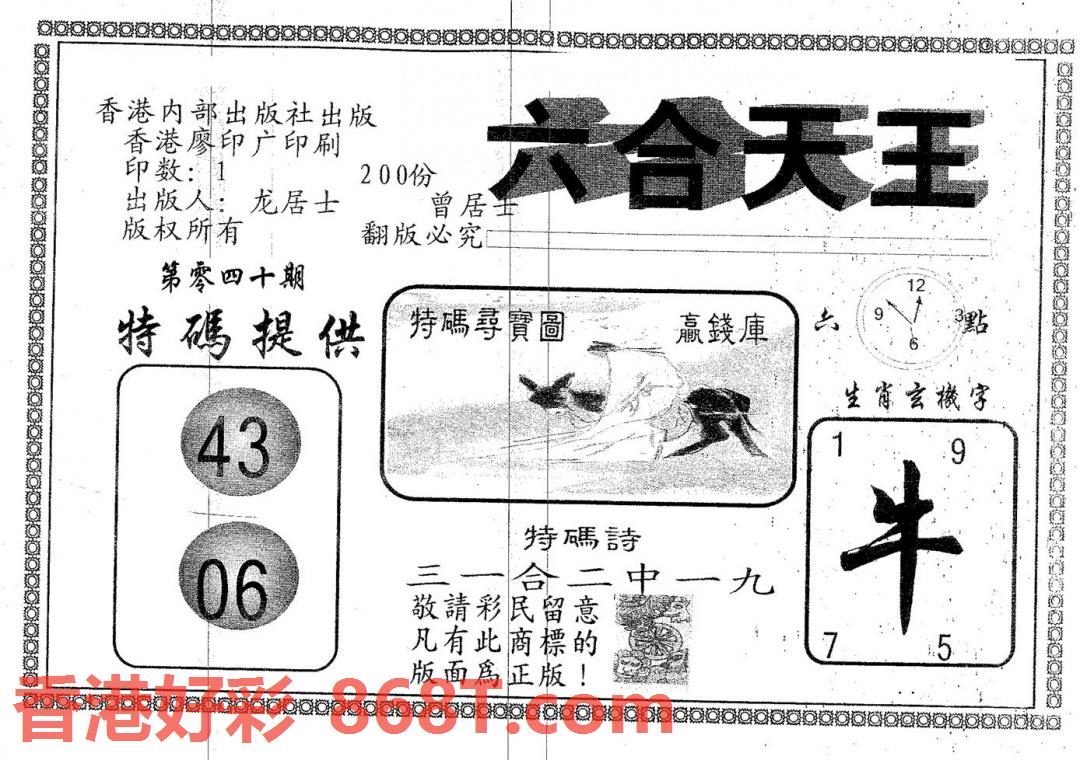 香港内部出版社出版
香港廖印广印刷
印数: 1 200份
出版人: 龙居士 曾居士
版权所有 翻版必究
六合天王
第零四十期
特碼提供
43
06
特碼尋寶圖 贏錢庫
特碼詩
三一合二中一九
敬請彩民留意
凡有此商標的
版面爲正版!
六 點
12
9 3
6
生肖玄機字
1 9
牛
7 5
香港好彩 868T.com